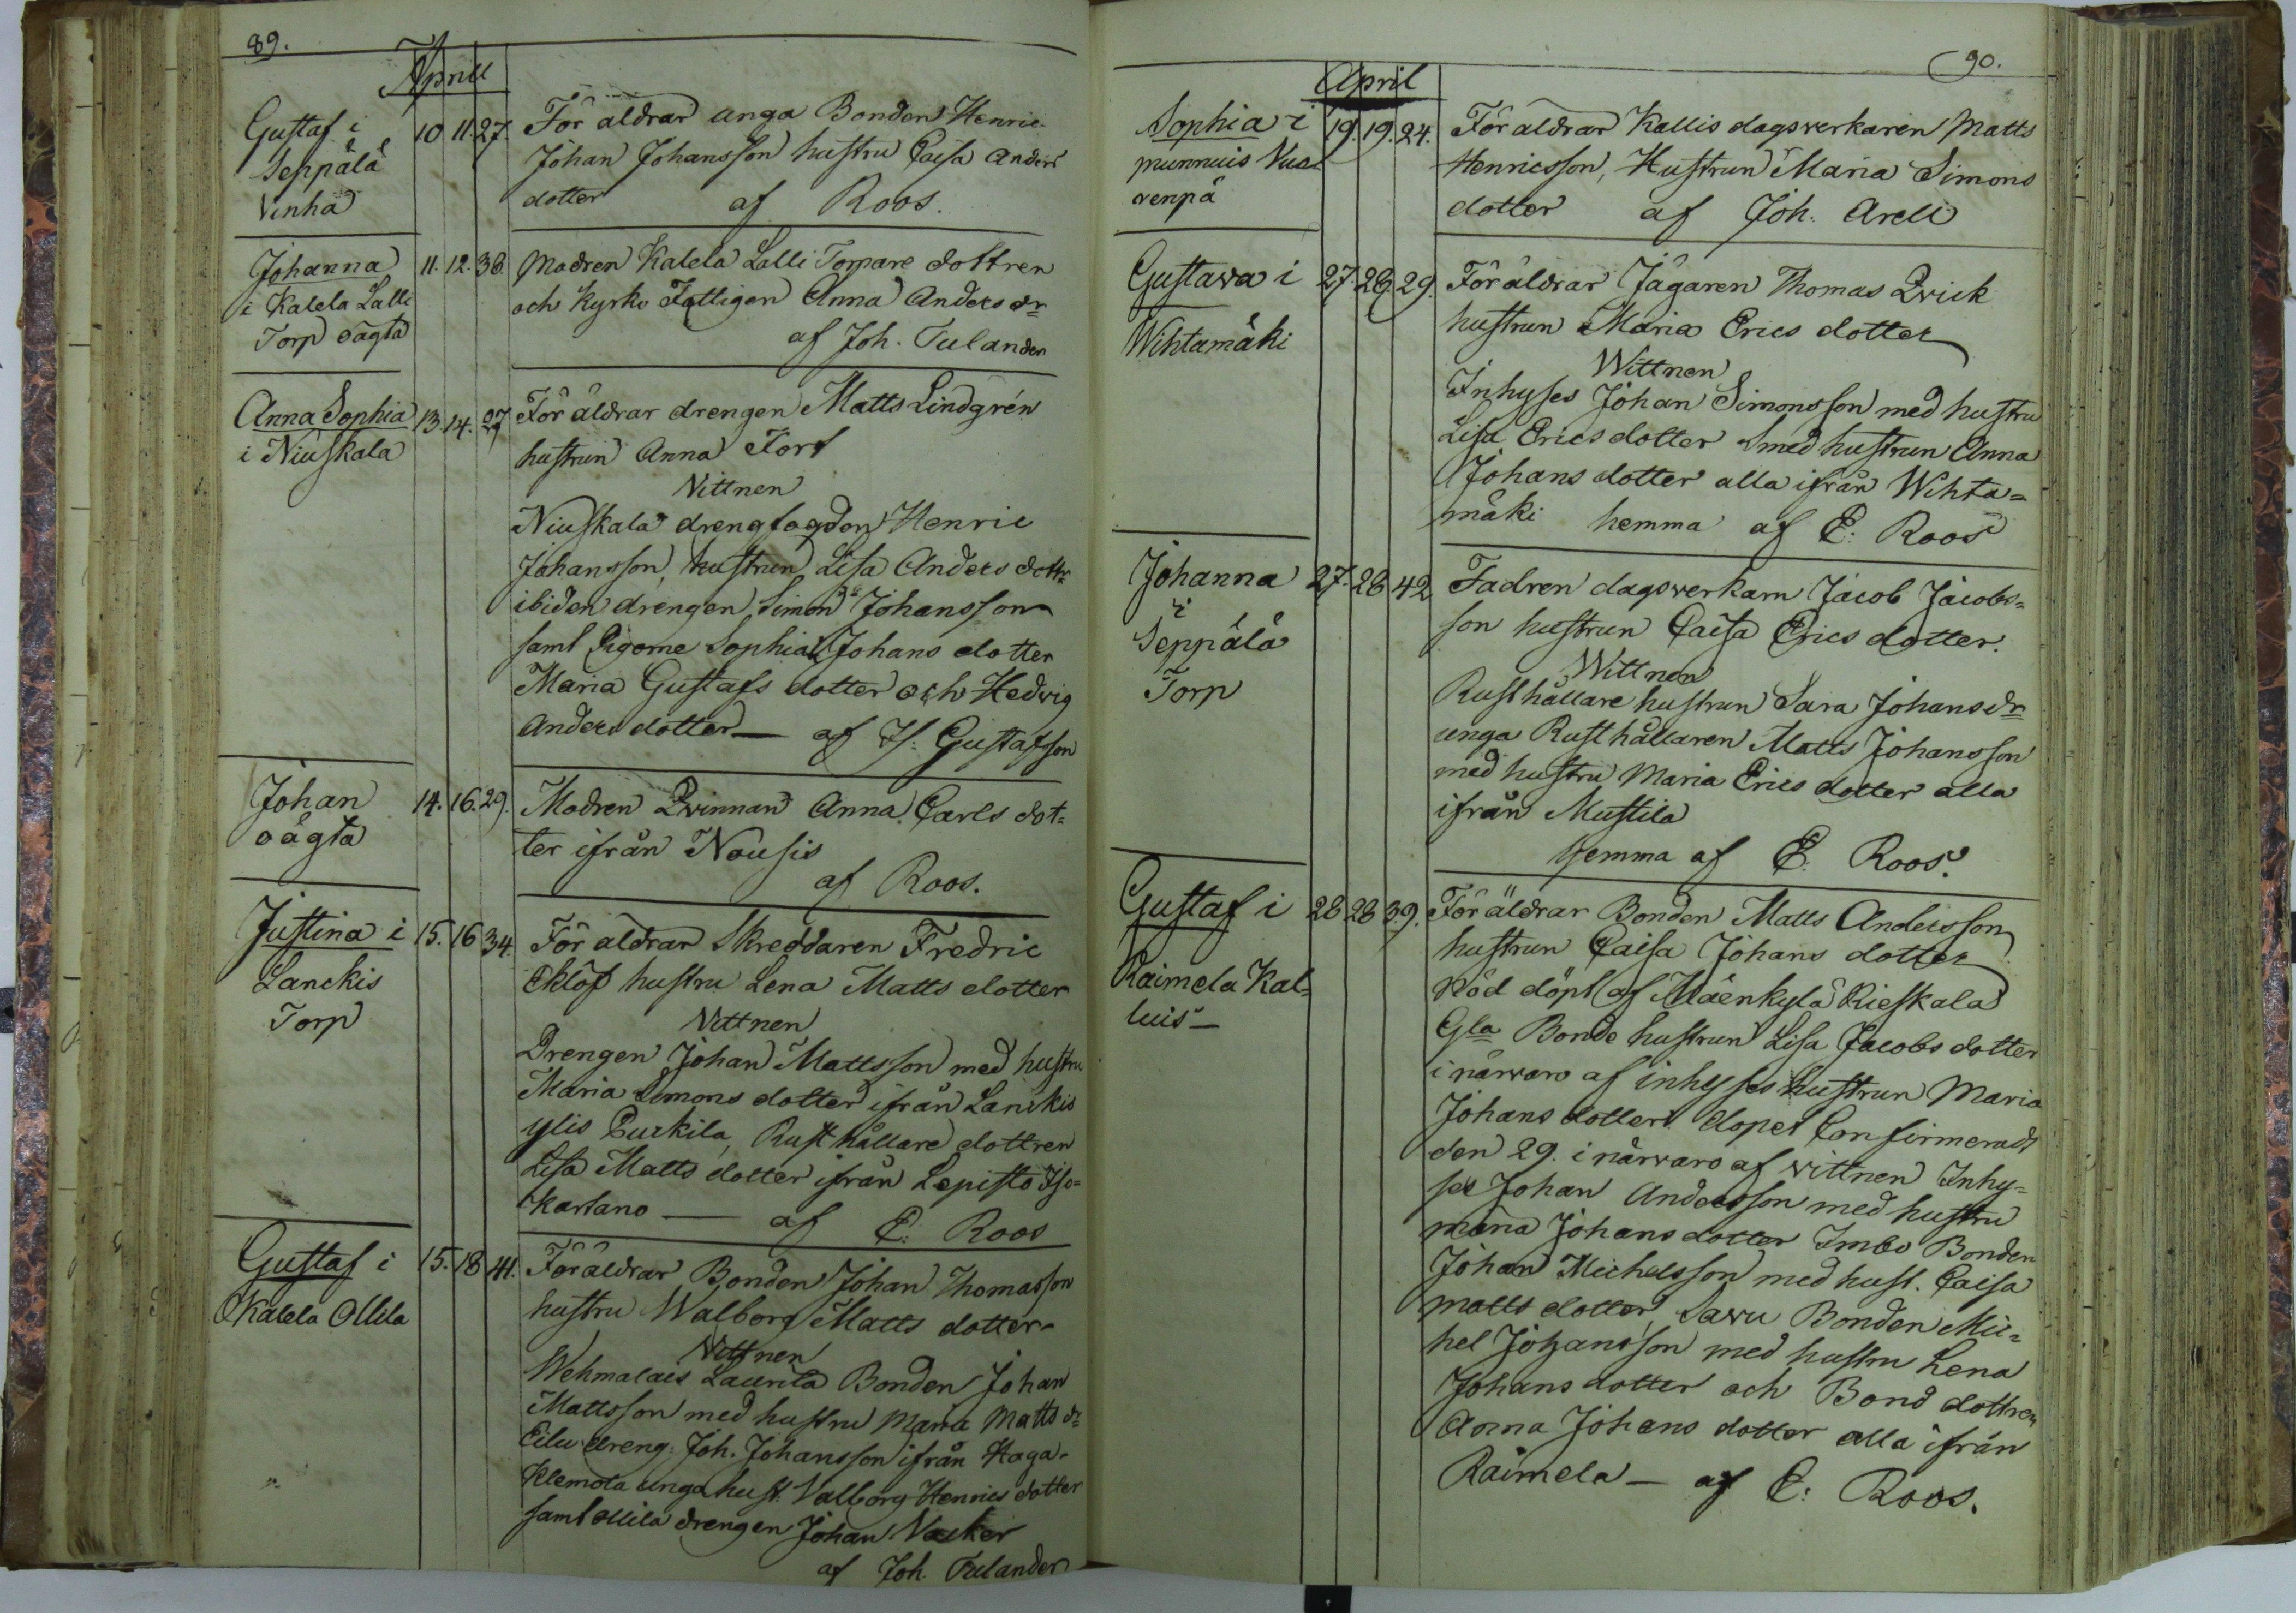 89.
April
Gustaf i
Seppälä
Vinha
10 11. 27.
För äldrar unga Bonden Henric
Johan Johansson hustru Caisa Anders
dotter af Roos.
Johanna
i Kalela Lalli
Torp oägta
11. 12. 38.
Modren Kalela Lalli Torpare dottren
och Kyrko Fattigen Anna Anders dr
af Joh. Tulander
Anna Sophia
i Niuskala
13. 14. 27
För äldrar drengen Matts Lindgrén
hustrun Anna Fort
Vittnen
Niuskala drengfogden Henric
Johansson, hustrun Lisa Anders dottr
ibiden drengen Simon Johansson
samt Pigorne Sophia Johans dotter
Maria Gustafs dotter och Hedvig
Anders dotter — af Is: Gustafsson
Johan
oägta
14. 16. 29.
Modren Qvinnan Anna Carls dot=
ter ifrån Nousis
af Roos.
Justina i
Lanckis
Torp
15. 16 34.
För äldrar Skreddaren Fredric
Eklöf hustru Lena Matts dotter
Vittnen
Drengen Johan Mattsson med hustru
Maria Simons dotter ifrån Lanckis
ylis Purkila, Rusthållare dottren
Lisa Matts dotter ifrån Lepistö Iso=
kartano — af E: Roos
Gustaf i
Kalela Ollila
15. 18 41.
Föräldrar Bonden Johan Thomasson
hustru Walborg Matts dotter
Vittnen
Wehmalais Laurila Bonden Johan
Mattsson med hustru Maria Matts dr
Eilu dreng: Joh. Johansson ifrån Haga-
Klemola unga hust. Valborg Henrics dotter
samt Ollila drengen Johan Vacker
af Joh. Tulander
90.
April
Sophia i
punnuis Vua
renpä
19. 19. 24.
För äldrar Kallis dagsverkaren Matts
Henricsson, Hustrun Maria Simons
dotter af Joh. Arell
Gustava i
Wihtamäki
27. 28. 29.
För äldrar Jägaren Thomas Qvick
hustrun Maria Erics dotter
Wittnen
Inhyses Johan Simonsson med hustru
Lisa Erics dotter med hustrun Anna
Johans dotter alla ifrån Wihta=
mäki hemma af E: Roos
Johanna
i
Seppälä
Torp
27. 28 42
Fadren dagsverkarn Jacob Jacobs=
son hustrun Caisa Erics dotter.
Wittnen
Rusthållare hustrun Sara Johans dr
unga Rusthållaren Matts Johansson
med hustru Maria Erics dotter alla
ifrån Mustila
hemma af E. Roos.
Gustaf i
Raimela Kal=
luis —
28 28 39.
För äldrar Bonden Matts Andersson
hustrun Caisa Johans dotter
Nöd döpt af Mäenkylä Rieskala
Gla Bonde hustrun Lisa Jacobs dotter
i närvaro af inhyses hustrun Maria
Johans dotter. dopet Confirmeradt
den 29. i närvaro af vittnen Inhy=
ses Johan Andersson med hustru
Maria Johans dotter Imbo Bonden
Johan Michelsson med hust. Caisa
Matts dotter, Savu Bonden Mic=
hel Johansson med hustru Lena
Johans dotter och Bond dottren
Anna Johans dotter alla ifrån
Raimela — af E: Roos.